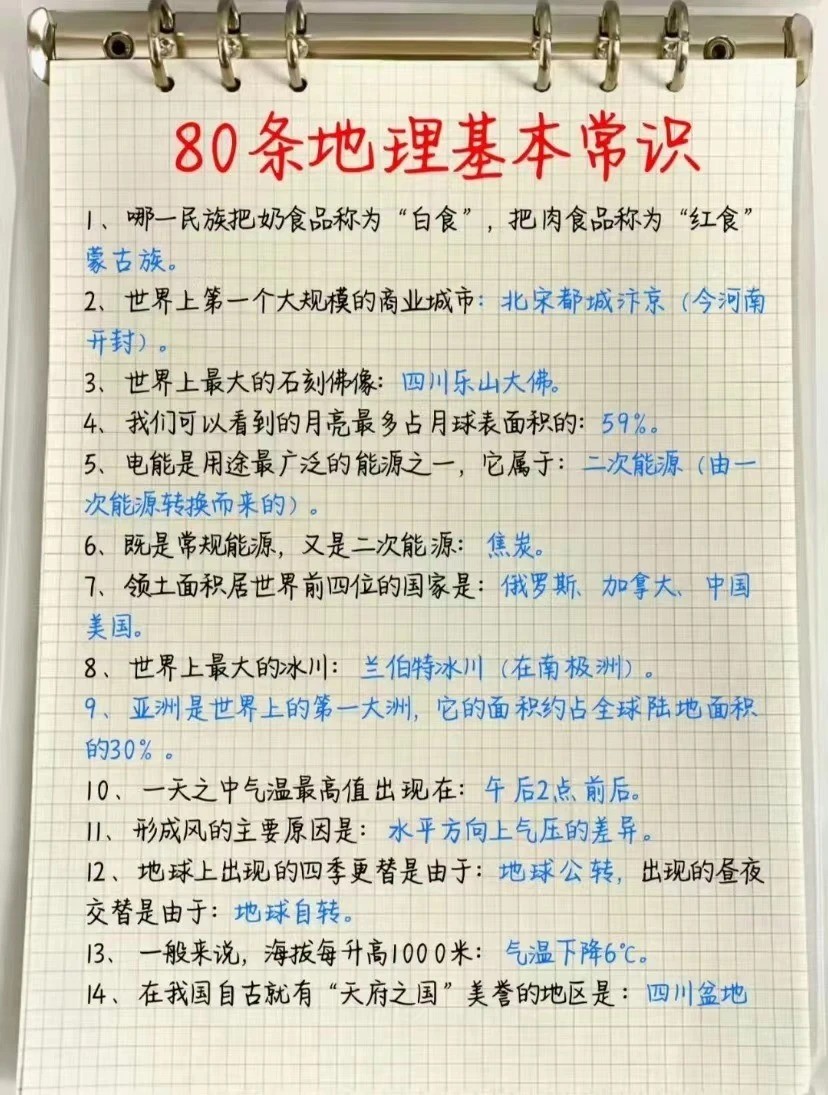 80条地理基本常识
1、哪一民族把奶食品称为“白食”，把肉食品称为“红食”
蒙古族。
2、世界上第一个大规模的商业城市：北宋都城汴京（今河南
开封）。
3、世界上最大的石刻佛像：四川乐山大佛。
4、我们可以看到的月亮最多占月球表面积的：59%。
5、电能是用途最广泛的能源之一，它属于：二次能源（由一
次能源转换而来的）。
6、既是常规能源，又是二次能源：焦炭。
7、领土面积居世界前四位的国家是：俄罗斯、加拿大、中国
美国。
8、世界上最大的冰川：兰伯特冰川（在南极洲）。
9、亚洲是世界上的第一大洲，它的面积约占全球陆地面积
的30%。
10、一天之中气温最高值出现在：午后2点前后。
11、形成风的主要原因是：水平方向上气压的差异。
12、地球上出现的四季更替是由于：地球公转，出现的昼夜
交替是由于：地球自转。
13、一般来说，海拔每升高1000米：气温下降6℃。
14、在我国自古就有“天府之国”美誉的地区是：四川盆地